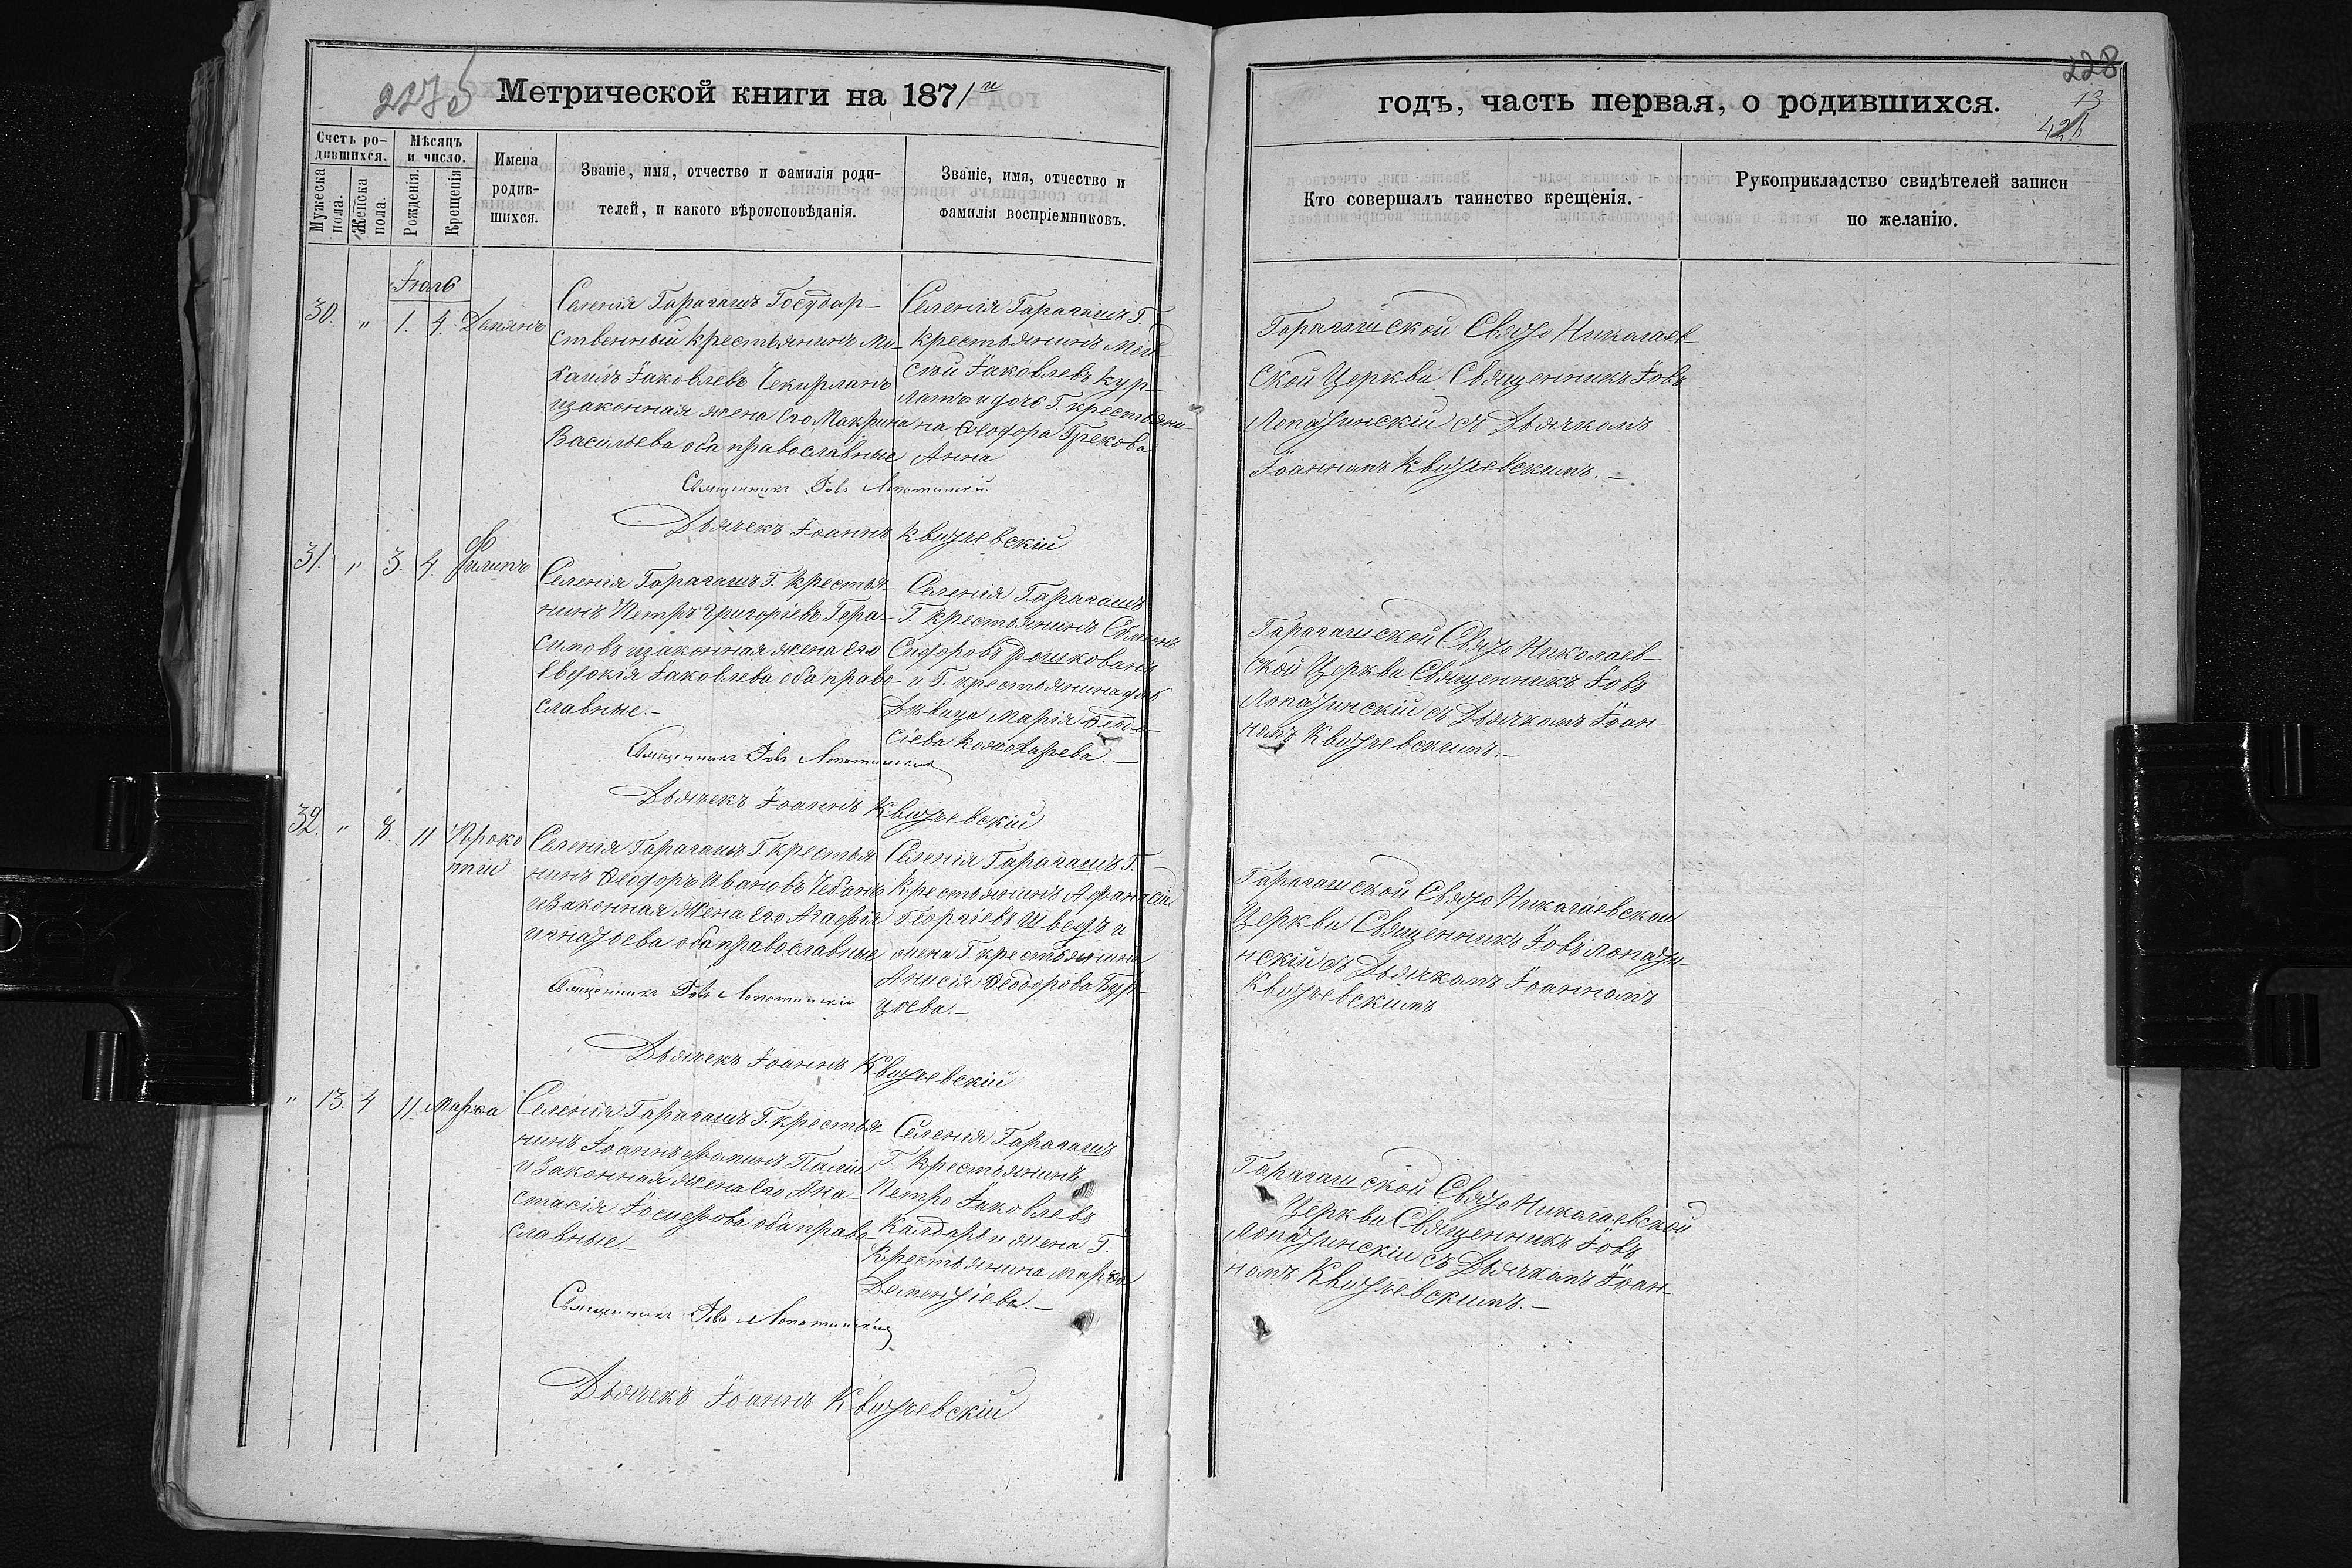 227б
Метрической книги на 1871й
Счетъ ро-
дившихся.
Мѣсяцъ
и число.
Мужеска пола.
Женска пола.
Рожденія.
Крещенія
Имена
родив-
шихся.
Званіе, имя, отчество и фамилія роди-
телей, и какого вѣроисповѣданія.
Званіе, имя, отчество и
фамилія воспріемниковъ.
Іюль
30. " 1. 4. Демянъ
Селенія Гарагашъ Государ-
ственный крестьянинъ Ми-
хаилъ Іаковлевъ Чекирланъ
и законная жена его Макрина
Васильева оба православные
Селенія Гарагашъ Г.
крестьянинъ Мой-
сѣй Іаковлевъ Кур-
латъ и дочь Г. крестьяни-
на Ѳеодора Грекова
Анна
Священникъ Іовъ Лопатинскій
Дьячекъ Іоаннъ Квитчевскій
31. " 3. 4. Филипъ
Селенія Гарагашъ Г. крестья-
нинъ Петръ Григоріевъ Гера-
симовъ и законная жена его
Евдокія Іаковлева оба право-
славные.-
Селенія Гарагашъ
Г. крестьянинъ Сѵмеонъ
Сидоровъ Рошкованъ
и Г. крестьянина дочь
Дѣвица Марія Ѳеодо-
сіева Кожохарева.-
Священникъ Іовъ Лопатинскій
Дьячекъ Іоаннъ Квитчевскій
32. " 8. 11 Проко
пій
Селенія Гарагашъ Г. крестья
нинъ Ѳеодоръ Ивановъ Чебанъ
и Законная Жена его Агафія
Игнатьева оба православные
Селенія Гарагашъ Г.
Крестьянинъ Афанасій
Георгіевъ Шведъ и
жена Г. крестьянина
Анисія Ѳеодорова
Священникъ Іовъ Лопатинскій
Дьячекъ Іоаннъ Квитчевскій
" 13. 4 11. Марѳа
Селенія Гарагашъ Г. крестья-
нинъ Іоаннъ Фоминъ Палій
и Законная жена его Ана-
стасія Іосифова оба право-
славные.-
Селенія Гарагашъ
Г. Крестьянинъ
Петро Іаковлевъ
Калдаръ и жена Г.
Крестьянина Марѳа
Дементіева.-
Священникъ Іовъ Лопатинскій
Дьячекъ Іоаннъ Квитчевскій
228
13
годъ, часть первая, о родившихся.
Кто совершалъ таинство крещенія.
Рукоприкладство свидѣтелей записи
по желанію.
Гарагашской Свято Николаев-
ской Церкви Священникъ Іовъ
Лопатинскій съ Дьячкомъ
Іоанномъ Квитчевскимъ.-
Гарагашской Свято Николаев-
ской Церкви Священникъ Іовъ
Лопатинскій съ Дьячкомъ Іоан-
номъ Квитчевскимъ.-
Гарагашской Свято Николаевской
Церкви Священникъ Іовъ Лопати-
нскій съ Дьячкомъ Іоанномъ
Квитчевскимъ
Гарагашской Свято Николаевской
Церкви Священникъ Іовъ
Лопатинскій съ Дьячкомъ Іоан-
номъ Квитчевскимъ.-